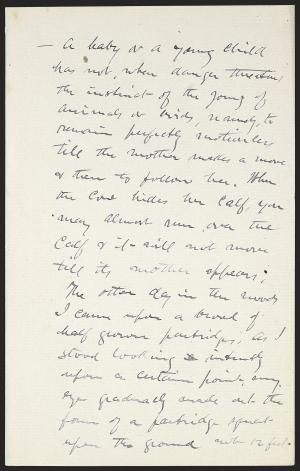 — A baby or a young child
has not, when danger threatens
the instinct of the young of
animals or birds, namely, to
remain perfectly motionless
till the mother makes a move
& then to follow her. When
the Cow hides her Calf, you
may almost run over the
Calf & it will not move
till its mother appears;
The other day in the woods
I came upon a brood of
half grown partridges, as I
stood looking intently
upon a certain point, my
eye gradually made out the
form of a partridge squat
upon the ground not 12 feet